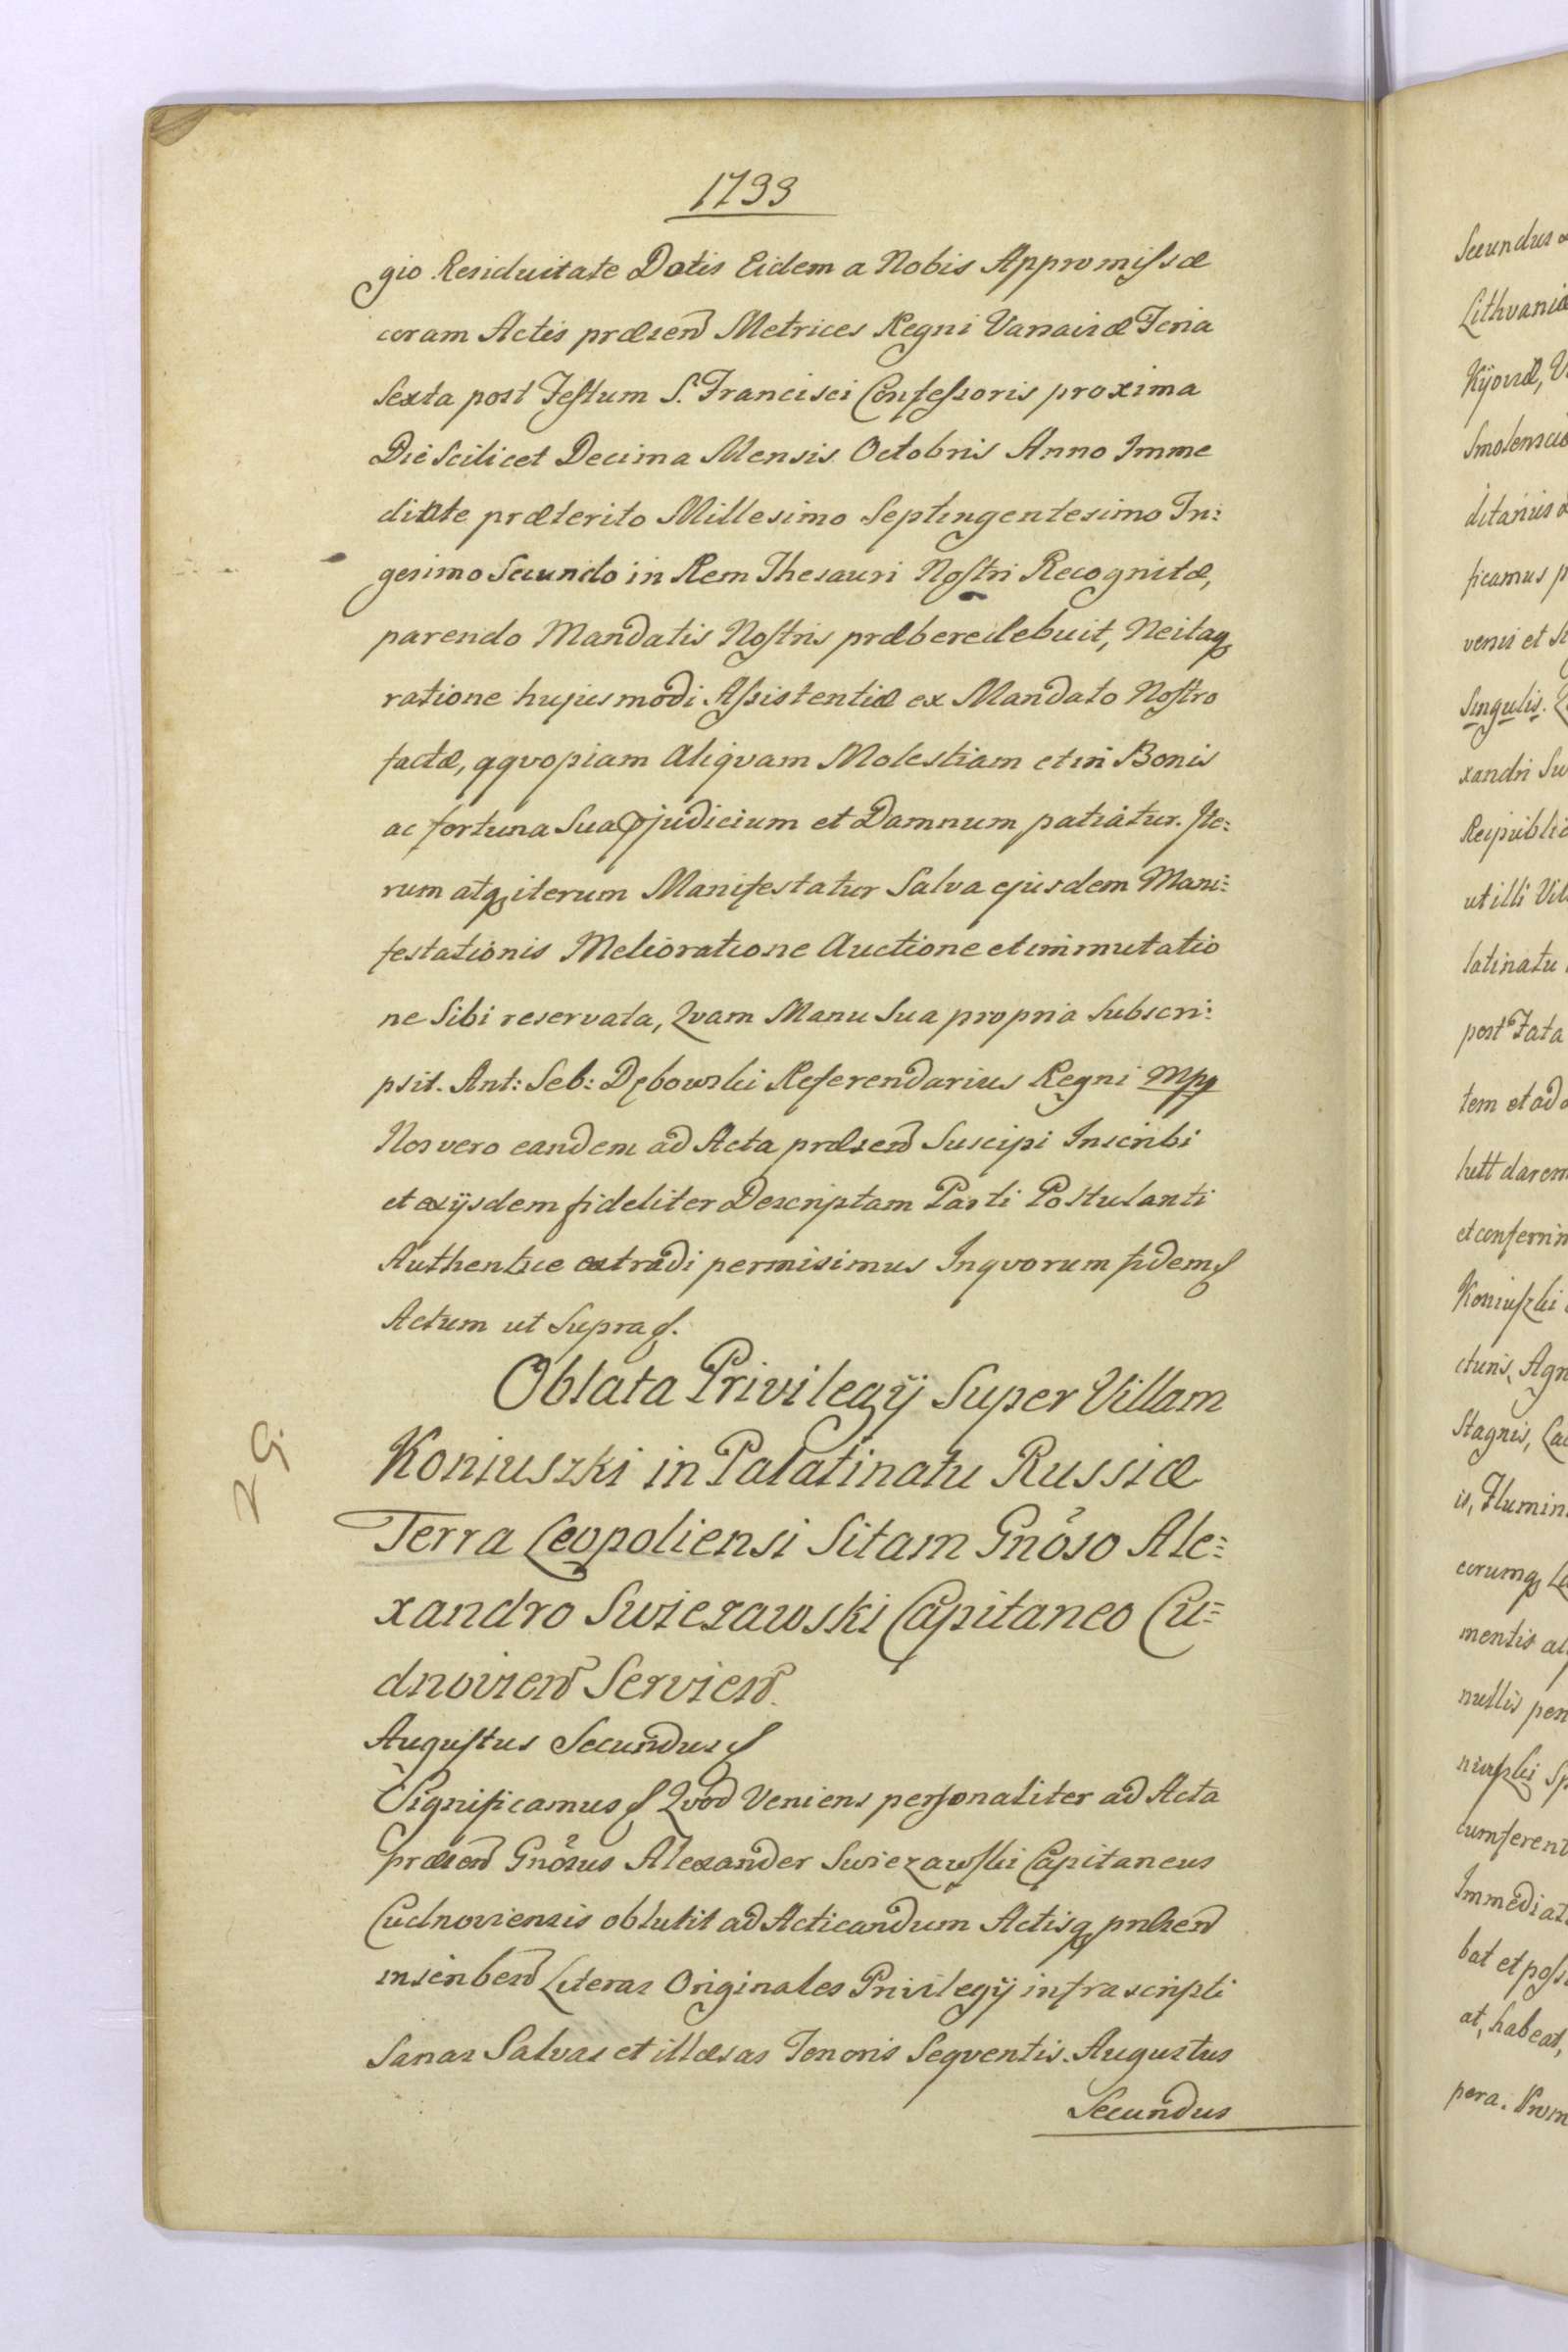 1733
gio Residuitate Dotis Eidem a Nobis Appromissæ
coram Actis præsen Metrices Regni Varsaviæ Feria
Sexta post Festum S. Francisci Confessoris proxima
Die Scilicet Decima Mensis Octobris Anno Imme
diate præterito Millesimo Septingentesimo Tri:
gesimo Secundo in Rem Thesauri Nostri Recognitæ,
parendo Mandatis Nostris præbere debuit, Ne itaq
ratione hujusmodi Assistentiæ ex Mandato Nostro
factæ, qqvopiam aliqvam Molestiam et in Bonis
ac fortuna Sua pjudicium et Damnum patiatur. Ite:
rum atq iterum Manifestatur Salva ejusdem Mani:
festationis Melioratione Auctione et immutatio
ne Sibi reservata, Qvam Manu Sua propria Subscri:
psit. Ant: Seb: Dębowski Referendarius Regni Mpp
Nos vero eandem ad Acta præsen Suscipi Inscribi
et ex ijsdem fideliter Descriptam Parti Postulanti
Authentice extradi permisimus In qvorum fidem
Actum ut Supra.
29.
Oblata Privilegÿ Super Villam
Koniuszki in Palatinatu Russiæ
Terra Leopoliensi Sitam Gnoso Ale:
xandro Swiezawski Capitaneo Cu:
dnovien Servien.
Augustus Secundus
Significamus Qvod Veniens personaliter ad Acta
præsen Gnosus Alexander Swiezawski Capitaneus
Cudnoviensis obtulit ad Acticandum Actisq præsen
inscriben Literas Originales Privilegÿ infrascripti
Sanas Salvas et illæsas Tenoris Seqventis. Augustus
Secundus
Secundus
Lithvaniæ
Kÿoviæ,
Smolensci
ditarius
ficamus
Singulis.
xandri
Reipublic
ut illi
latinatu
post Fata
tem et ad
Koniuszki
Stagnis,
is, Flumin
eorumq
mentis
nullis
cumferent
Immediat
at, habeat,
pera.